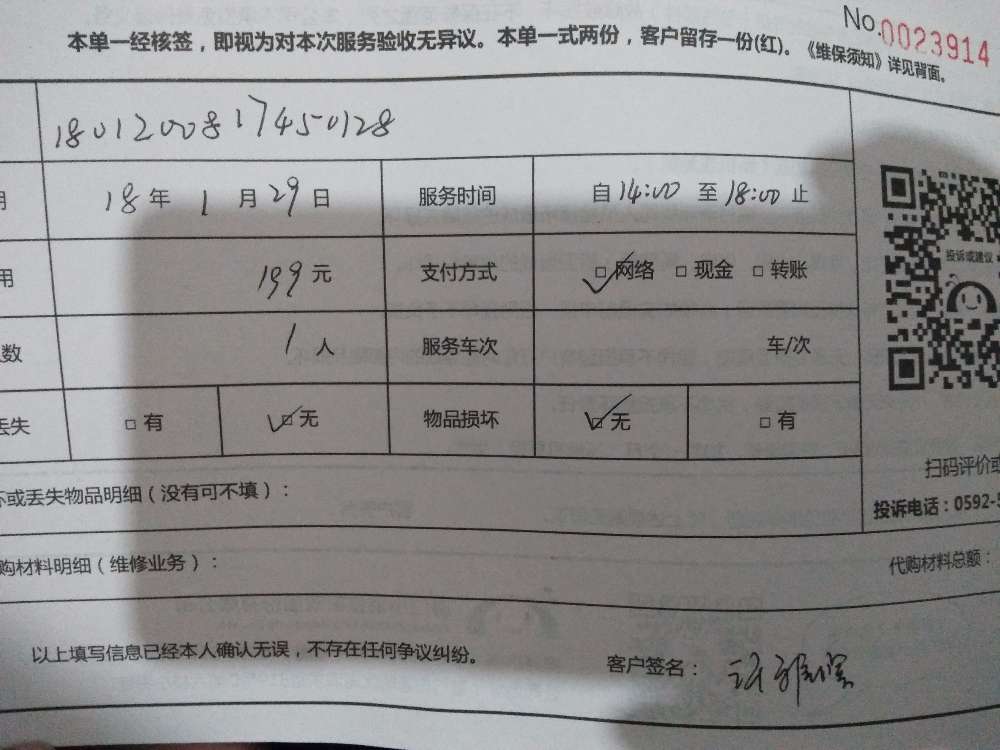 No.0023914
本单一经核签，即视为对本次服务验收无异议。本单一式两份，客户留存一份(红)。《维保须知》详见背面。
1801200817450128
期 18年 1月 29日 服务时间 自14:00 至 18:00 止
用 199元 支付方式 ☑网络 □现金 □转账
数 1人 服务车次 车/次
丢失 □有 ☑无 物品损坏 ☑无 □有
投诉或建议
扫码评价或
投诉电话：0592-5
坏或丢失物品明细（没有可不填）：
购材料明细（维修业务）：
代购材料总额：
以上填写信息已经本人确认无误，不存在任何争议纠纷。
客户签名：